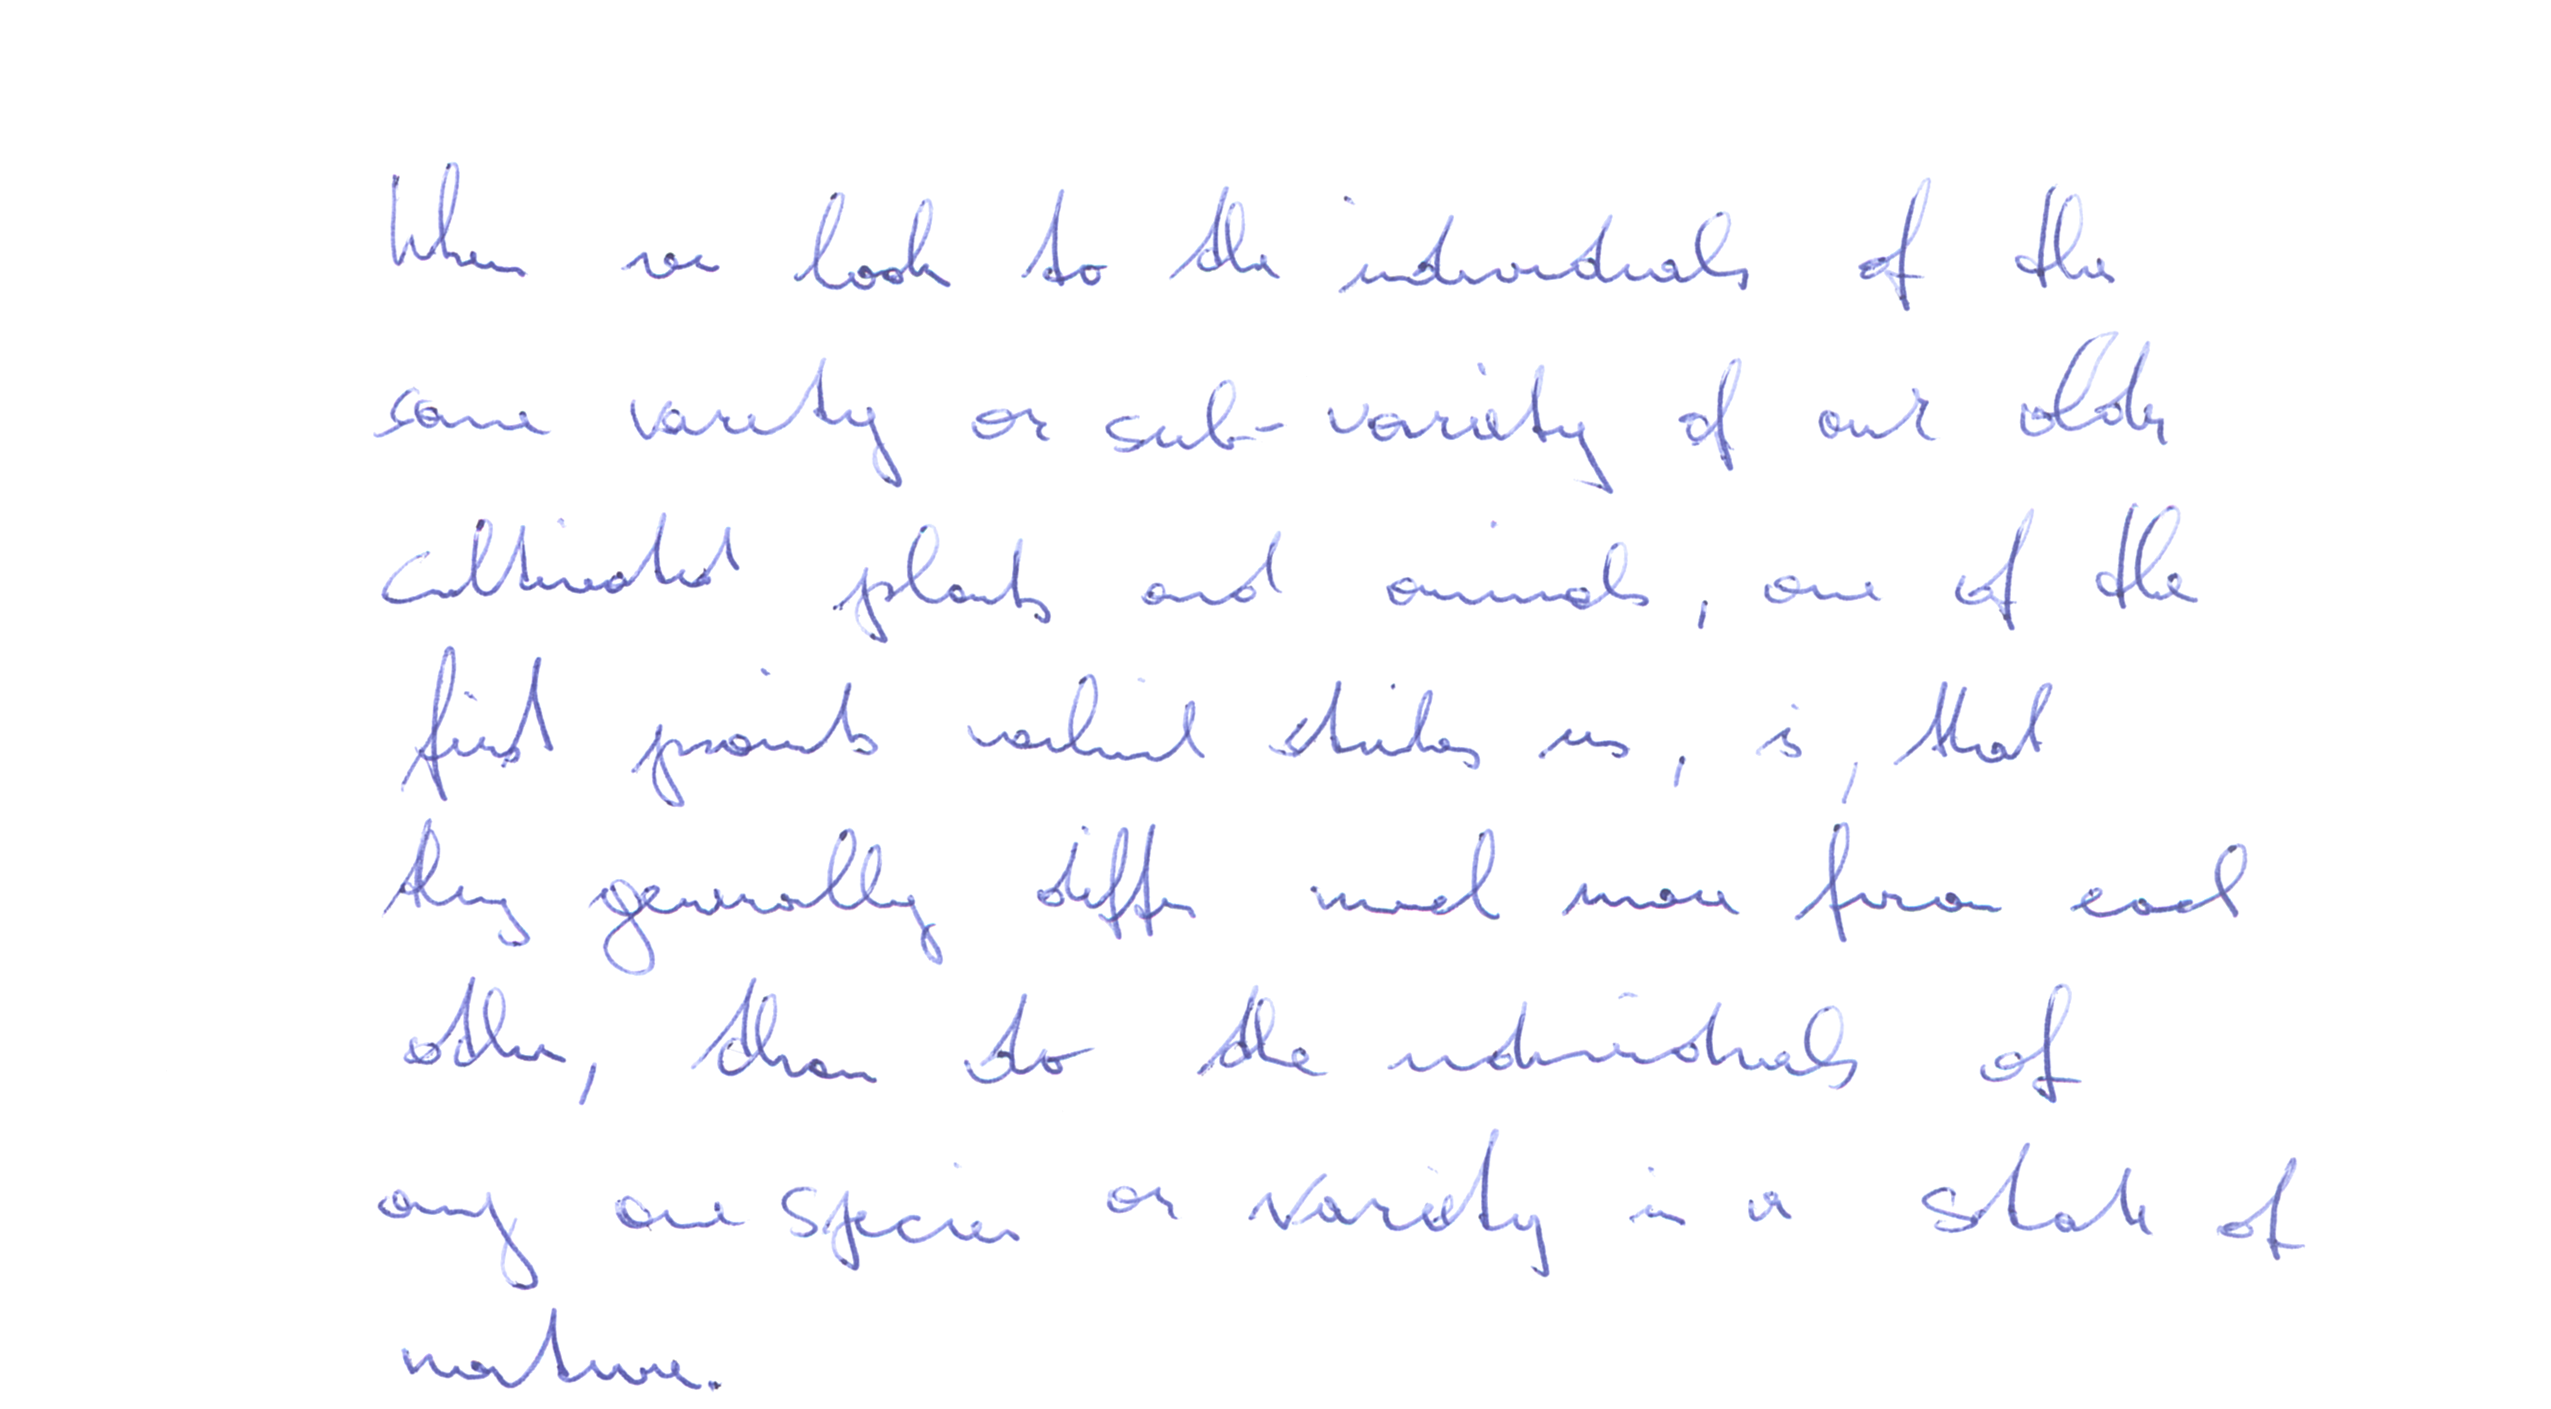 When we look to the individuals of the
same variety or sub-variety of our older
cultivated plants and animals, one of the
first points which strikes us, is, that
they generally differ much more from each
other, than do the individuals of
any one species or variety in a state of
nature.